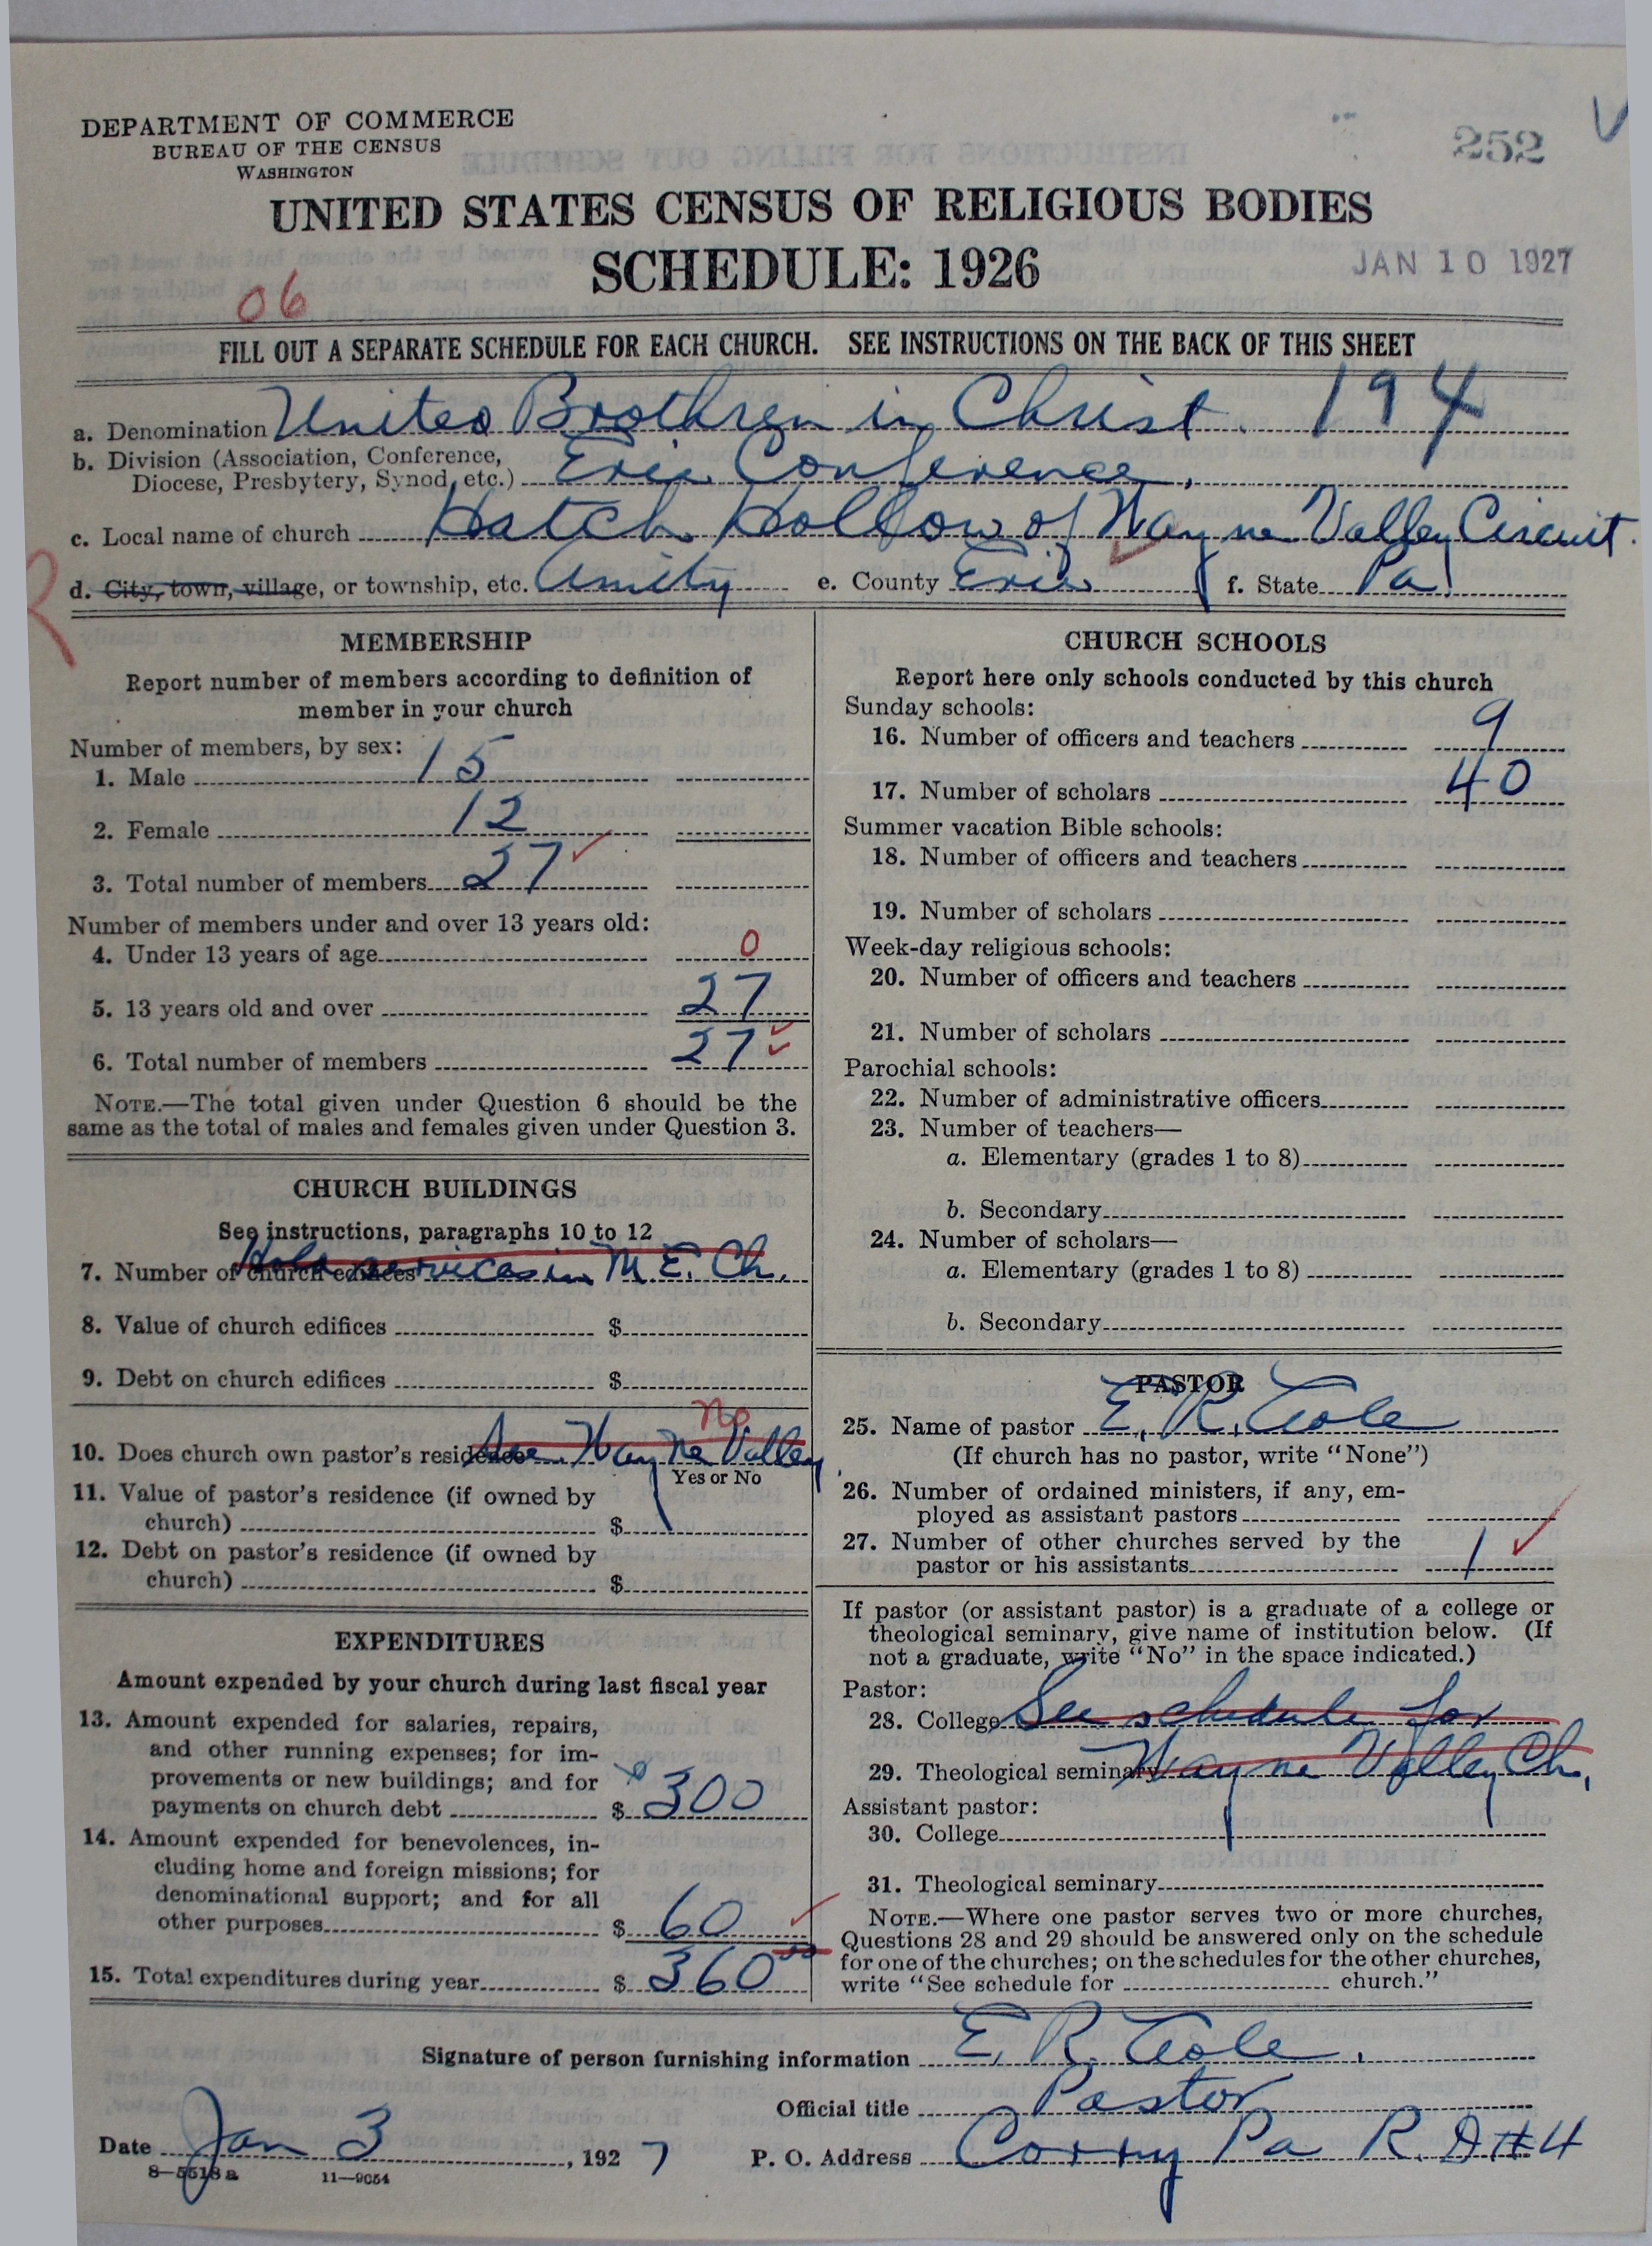 DEPARTMENT OF COMMERCE
BUREAU OF THE CENSUS
WASHINGTON
252
UNITED STATES CENSUS OF RELIGIOUS BODIES
SCHEDULE: 1926
JAN 10 1927
06
FILL OUT A SEPARATE SCHEDULE FOR EACH CHURCH. SEE INSTRUCTIONS ON THE BACK OF THIS SHEET
a. Denomination United Brothren in Christ. 194
b. Division (Association, Conference, Diocese, Presbytery, Synod, etc.) Erie Conference,
c. Local name of church Hatch Hollow of Wayne Valley Circuit.
d. City, town, village, or township, etc. Amity e. County Erie f. State Pa.
R
MEMBERSHIP
Report number of members according to definition of
member in your church
Number of members, by sex:
1. Male 15
2. Female 12
3. Total number of members 27
Number of members under and over 13 years old:
4. Under 13 years of age 0
5. 13 years old and over 27
6. Total number of members 27
NOTE.—The total given under Question 6 should be the
same as the total of males and females given under Question 3.
CHURCH BUILDINGS
See instructions, paragraphs 10 to 12
7. Number of church edifices Hold services in M. E. Ch.
8. Value of church edifices $
9. Debt on church edifices $
No
10. Does church own pastor's residence See Wayne Valley
Yes or No
11. Value of pastor's residence (if owned by
church) $
12. Debt on pastor's residence (if owned by
church) $
EXPENDITURES
Amount expended by your church during last fiscal year
13. Amount expended for salaries, repairs,
and other running expenses; for im-
provements or new buildings; and for
payments on church debt $ 300
14. Amount expended for benevolences, in-
cluding home and foreign missions; for
denominational support; and for all
other purposes $ 60
15. Total expenditures during year $ 360 00
CHURCH SCHOOLS
Report here only schools conducted by this church
Sunday schools:
16. Number of officers and teachers 9
17. Number of scholars 40
Summer vacation Bible schools:
18. Number of officers and teachers
19. Number of scholars
Week-day religious schools:
20. Number of officers and teachers
21. Number of scholars
Parochial schools:
22. Number of administrative officers
23. Number of teachers—
a. Elementary (grades 1 to 8)
b. Secondary
24. Number of scholars—
a. Elementary (grades 1 to 8)
b. Secondary
PASTOR
25. Name of pastor E. R. Cole
(If church has no pastor, write "None")
26. Number of ordained ministers, if any, em-
ployed as assistant pastors
27. Number of other churches served by the
pastor or his assistants 1
If pastor (or assistant pastor) is a graduate of a college or
theological seminary, give name of institution below. (If
not a graduate, write "No" in the space indicated.)
Pastor:
28. College See schedule for
29. Theological seminary Wayne Valley Ch.
Assistant pastor:
30. College
31. Theological seminary
NOTE.—Where one pastor serves two or more churches,
Questions 28 and 29 should be answered only on the schedule
for one of the churches; on the schedules for the other churches,
write "See schedule for church."
Signature of person furnishing information E. R. Cole.
Official title Pastor
Date Jan 3, 1927 P. O. Address Corry Pa R. D #4
8—5518 a 11—9054